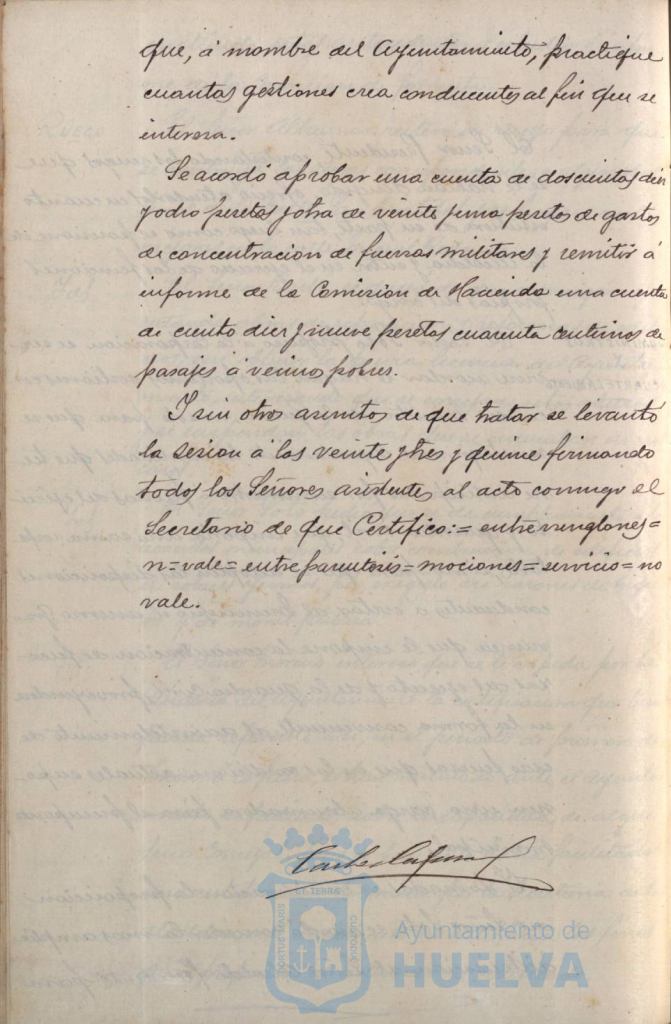 que, á nombre del Ayuntamiento, practique
cuantas gestiones crea conducentes al fin que se
interesa.
Se acordó aprobar una cuenta de doscientas diez
y ocho pesetas y otra de veinte y una pesetas de gastos
de concentracion de fuerzas militares y remitir á
informe de la Comision de Hacienda una cuenta
de ciento diez y nueve pesetas cuarenta centimos de
pasajes á vecinos pobres.
Y sin otros asuntos de que tratar se levantó
la sesion á las veinte y tres y quince firmando
todos los Señores asistentes al acto conmigo el
Secretario de que Certifico:= entre renglones=
n=vale= entre parentesis= mociones= servicio= no
vale.
ET TERRÆ
PORTUS MARIS
CUSTODIÆ
Ayuntamiento de
HUELVA